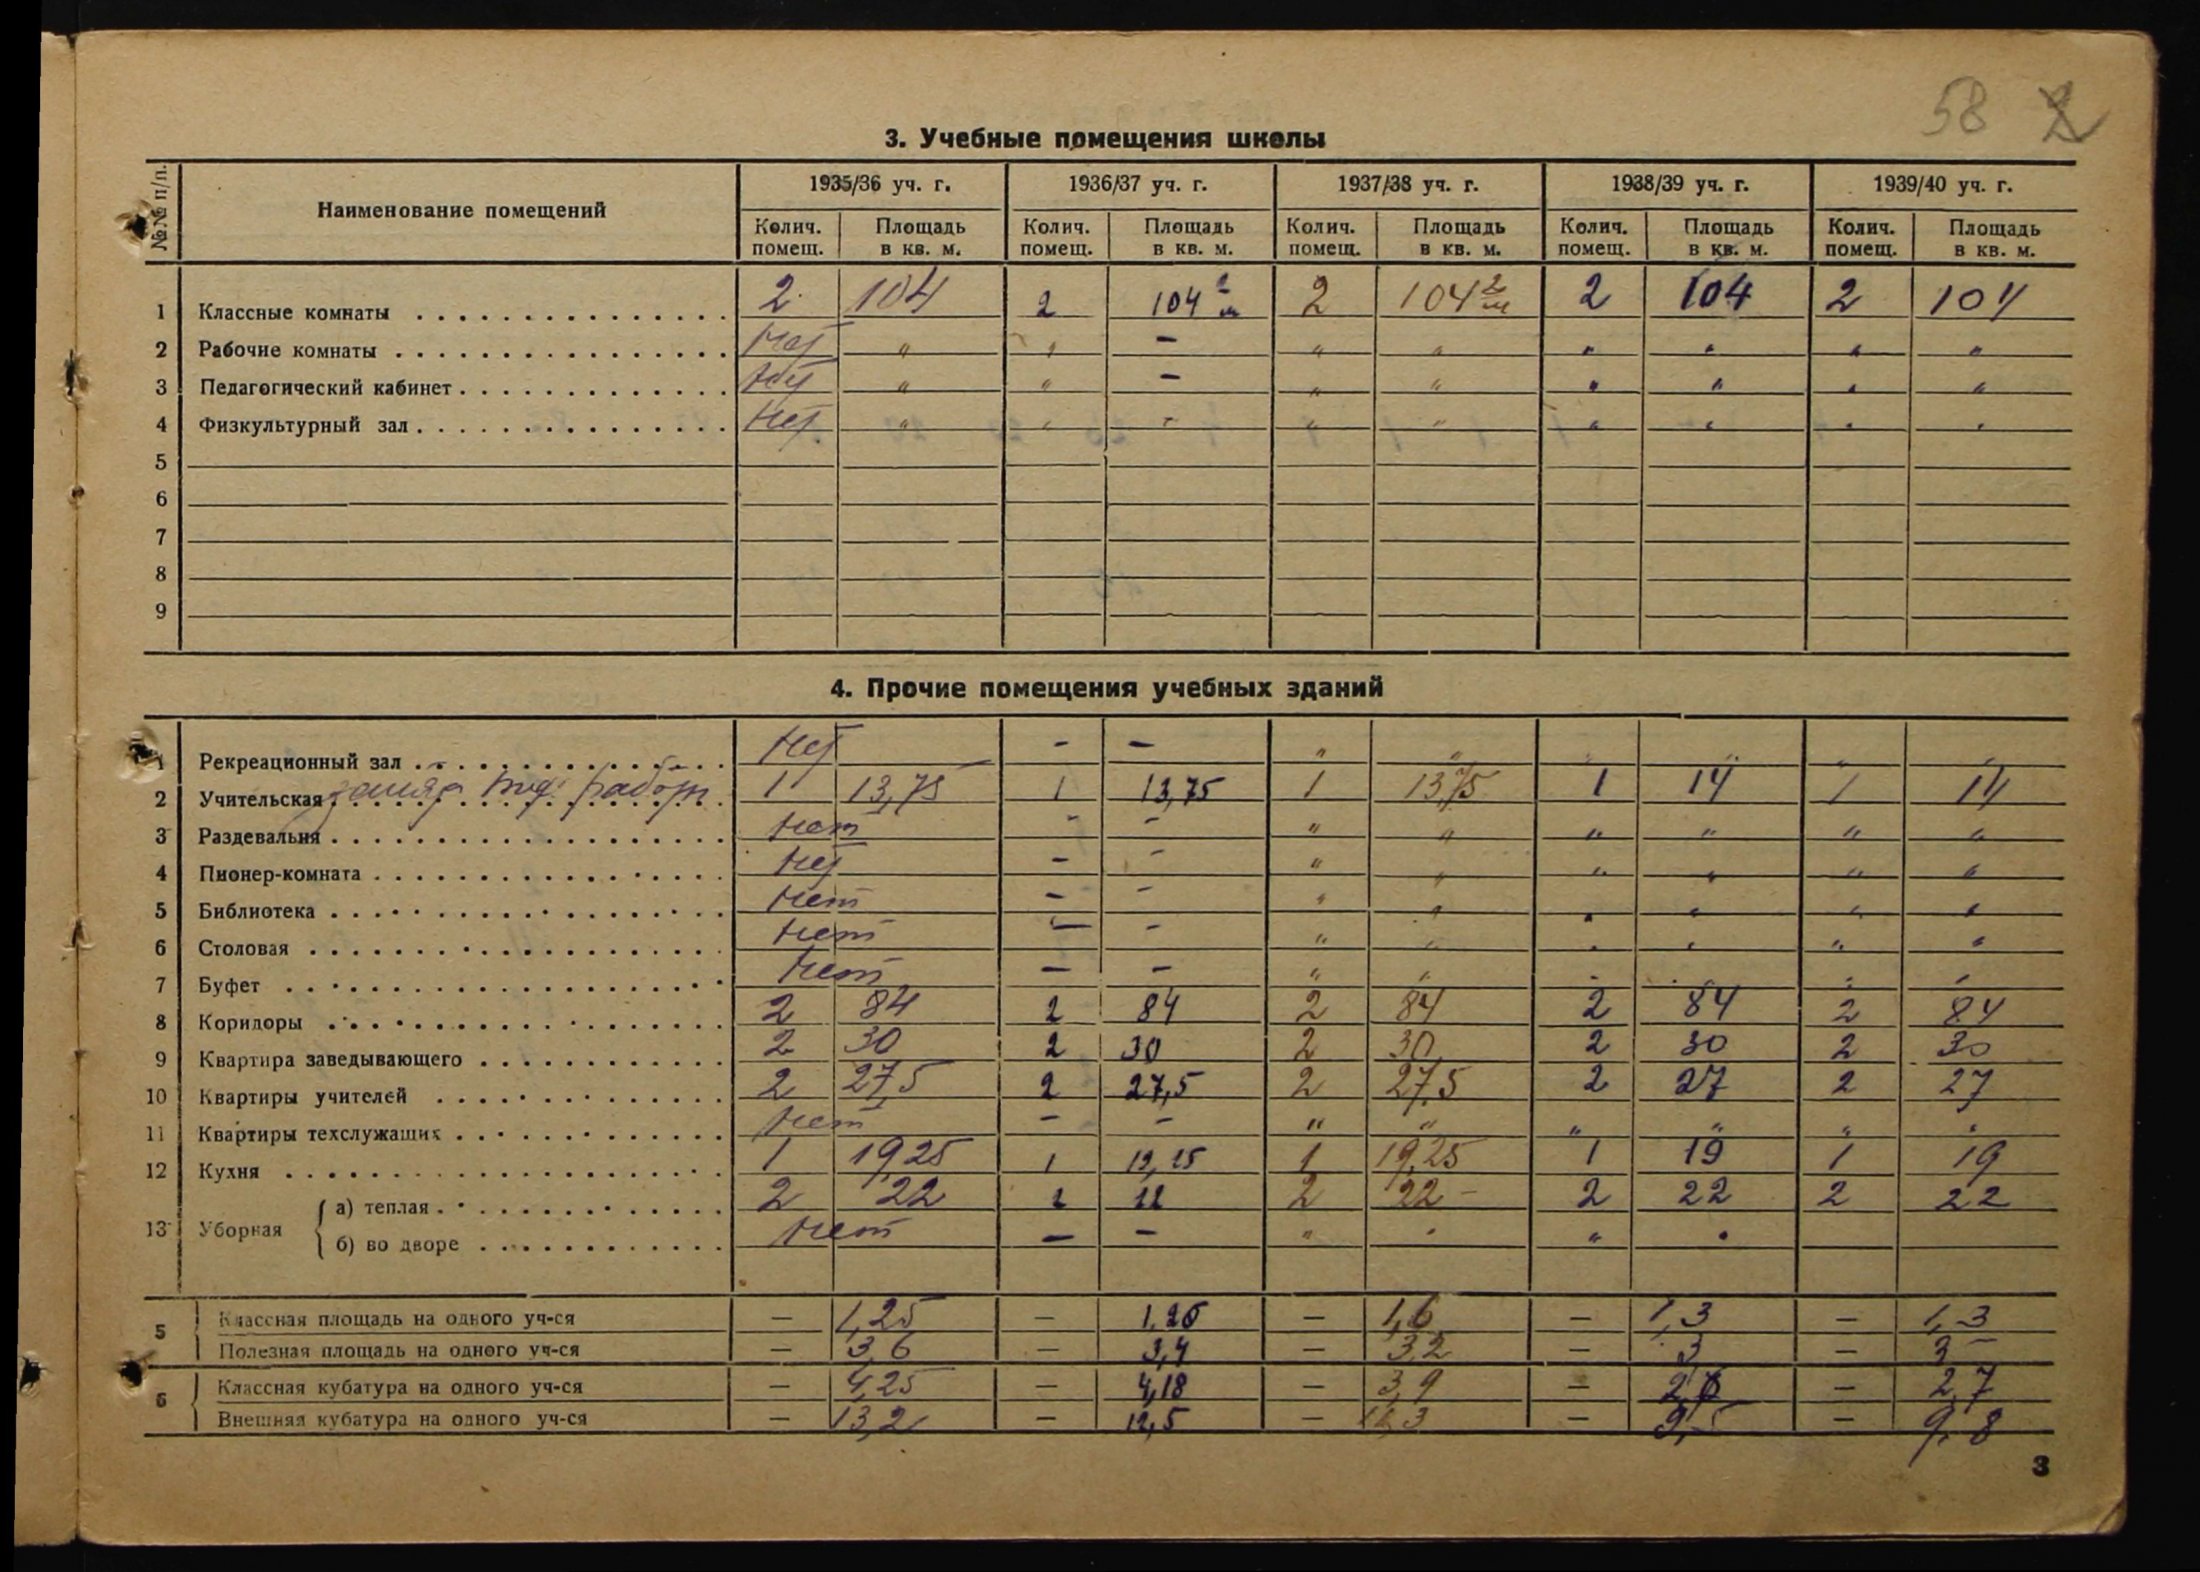 58
3. Учебные помещения школы
№№ п/п. Наименование помещений 1935/36 уч. г. 1936/37 уч. г. 1937/38 уч. г. 1938/39 уч. г. 1939/40 уч. г.
Колич. помещ. Площадь в кв. м. Колич. помещ. Площадь в кв. м. Колич. помещ. Площадь в кв. м. Колич. помещ. Площадь в кв. м. Колич. помещ. Площадь в кв. м.
1 Классные комнаты 2 104 2 104 м2 2 104 м2 2 104 2 104
2 Рабочие комнаты Нет " " — " " " " " "
3 Педагогический кабинет Нет " " — " " " " " "
4 Физкультурный зал Нет " " - " " " " " "
5
6
7
8
9
4. Прочие помещения учебных зданий
1 Рекреационный зал Нет — — " " " " " "
2 Учительская 1 13,75 1 13,75 1 13,75 1 14 1 14
3 Раздевальня Нет - - " " " " " "
4 Пионер-комната Нет — - " " " " " "
5 Библиотека Нет — - " " " " " "
6 Столовая Нет — - " " " " " "
7 Буфет Нет — — " " " " " "
8 Коридоры 2 84 2 84 2 84 2 84 2 84
9 Квартира заведывающего 2 30 2 30 2 30 2 30 2 30
10 Квартиры учителей 2 27,5 2 27,5 2 27,5 2 27 2 27
11 Квартиры техслужащих Нет — - " " " " " "
12 Кухня 1 19,25 1 19,25 1 19,25 1 19 1 19
13 Уборная а) теплая 2 22 2 22 2 22 2 22 2 22
б) во дворе Нет — — " " " "
5 Классная площадь на одного уч-ся — 1,25 — 1,26 — 1,6 — 1,3 — 1,3
Полезная площадь на одного уч-ся — 3,6 — 3,4 — 3,2 — 3 — 3
6 Классная кубатура на одного уч-ся — 4,25 — 4,18 — 3,9 — — 2,7
Внешняя кубатура на одного уч-ся — 13,2 — 12,5 — — 9,5 — 9,8
3